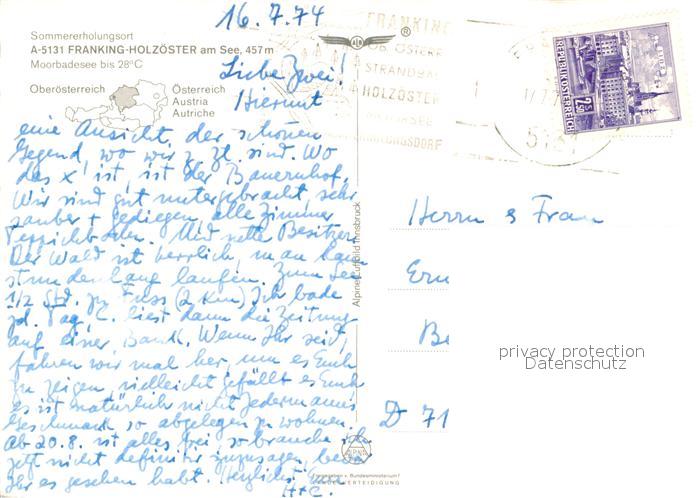 16.7.74
Sommererholungsort
A-5131 FRANKING-HOLZÖSTER am See, 457m
Moorbadesee bis 28°C
Oberösterreich
Österreich
Austria
Autriche
FRANKING
OB. ÖSTERR
STRANDBAD
HOLZÖSTER
AM SEE
REPUBLIK ÖSTERREICH
S 2.50
5131
Liebe Zwei!
Hiermit
eine Ansicht der schönen
Gegend, wo wir z. Zt. sind. Wo
das x ist, ist der Bauernhof.
Wir sind gut untergebracht, sehr
sauber + gediegen, alle Zimmer
Teppichboden. Und nette Besitzer.
Der Wald ist herrlich, man kann
stundenlang laufen. Zum See
1/2 Std. zu Fuss (2 km) Ich bade
jd. Tag, C. liest dann die Zeitung
auf einer Bank. Wenn Ihr seid,
fahren wir mal her, um es Euch
zu zeigen, vielleicht gefällt es Euch
es ist natürlich nicht Jedermanns
Geschmack so abgelegen zu wohnen.
Ab 20.8. ist alles frei, so brauche ich
jetzt nicht definitiv zuzusagen, bevor
Ihr es gesehen habt. Herzlichst Eure
H + C.
Alpine Luftbild Innsbruck
Herrn & Frau
Ern
Be
D 71
privacy protection
Datenschutz
Freigegeben v. Bundesministerium f.
LANDESVERTEIDIGUNG